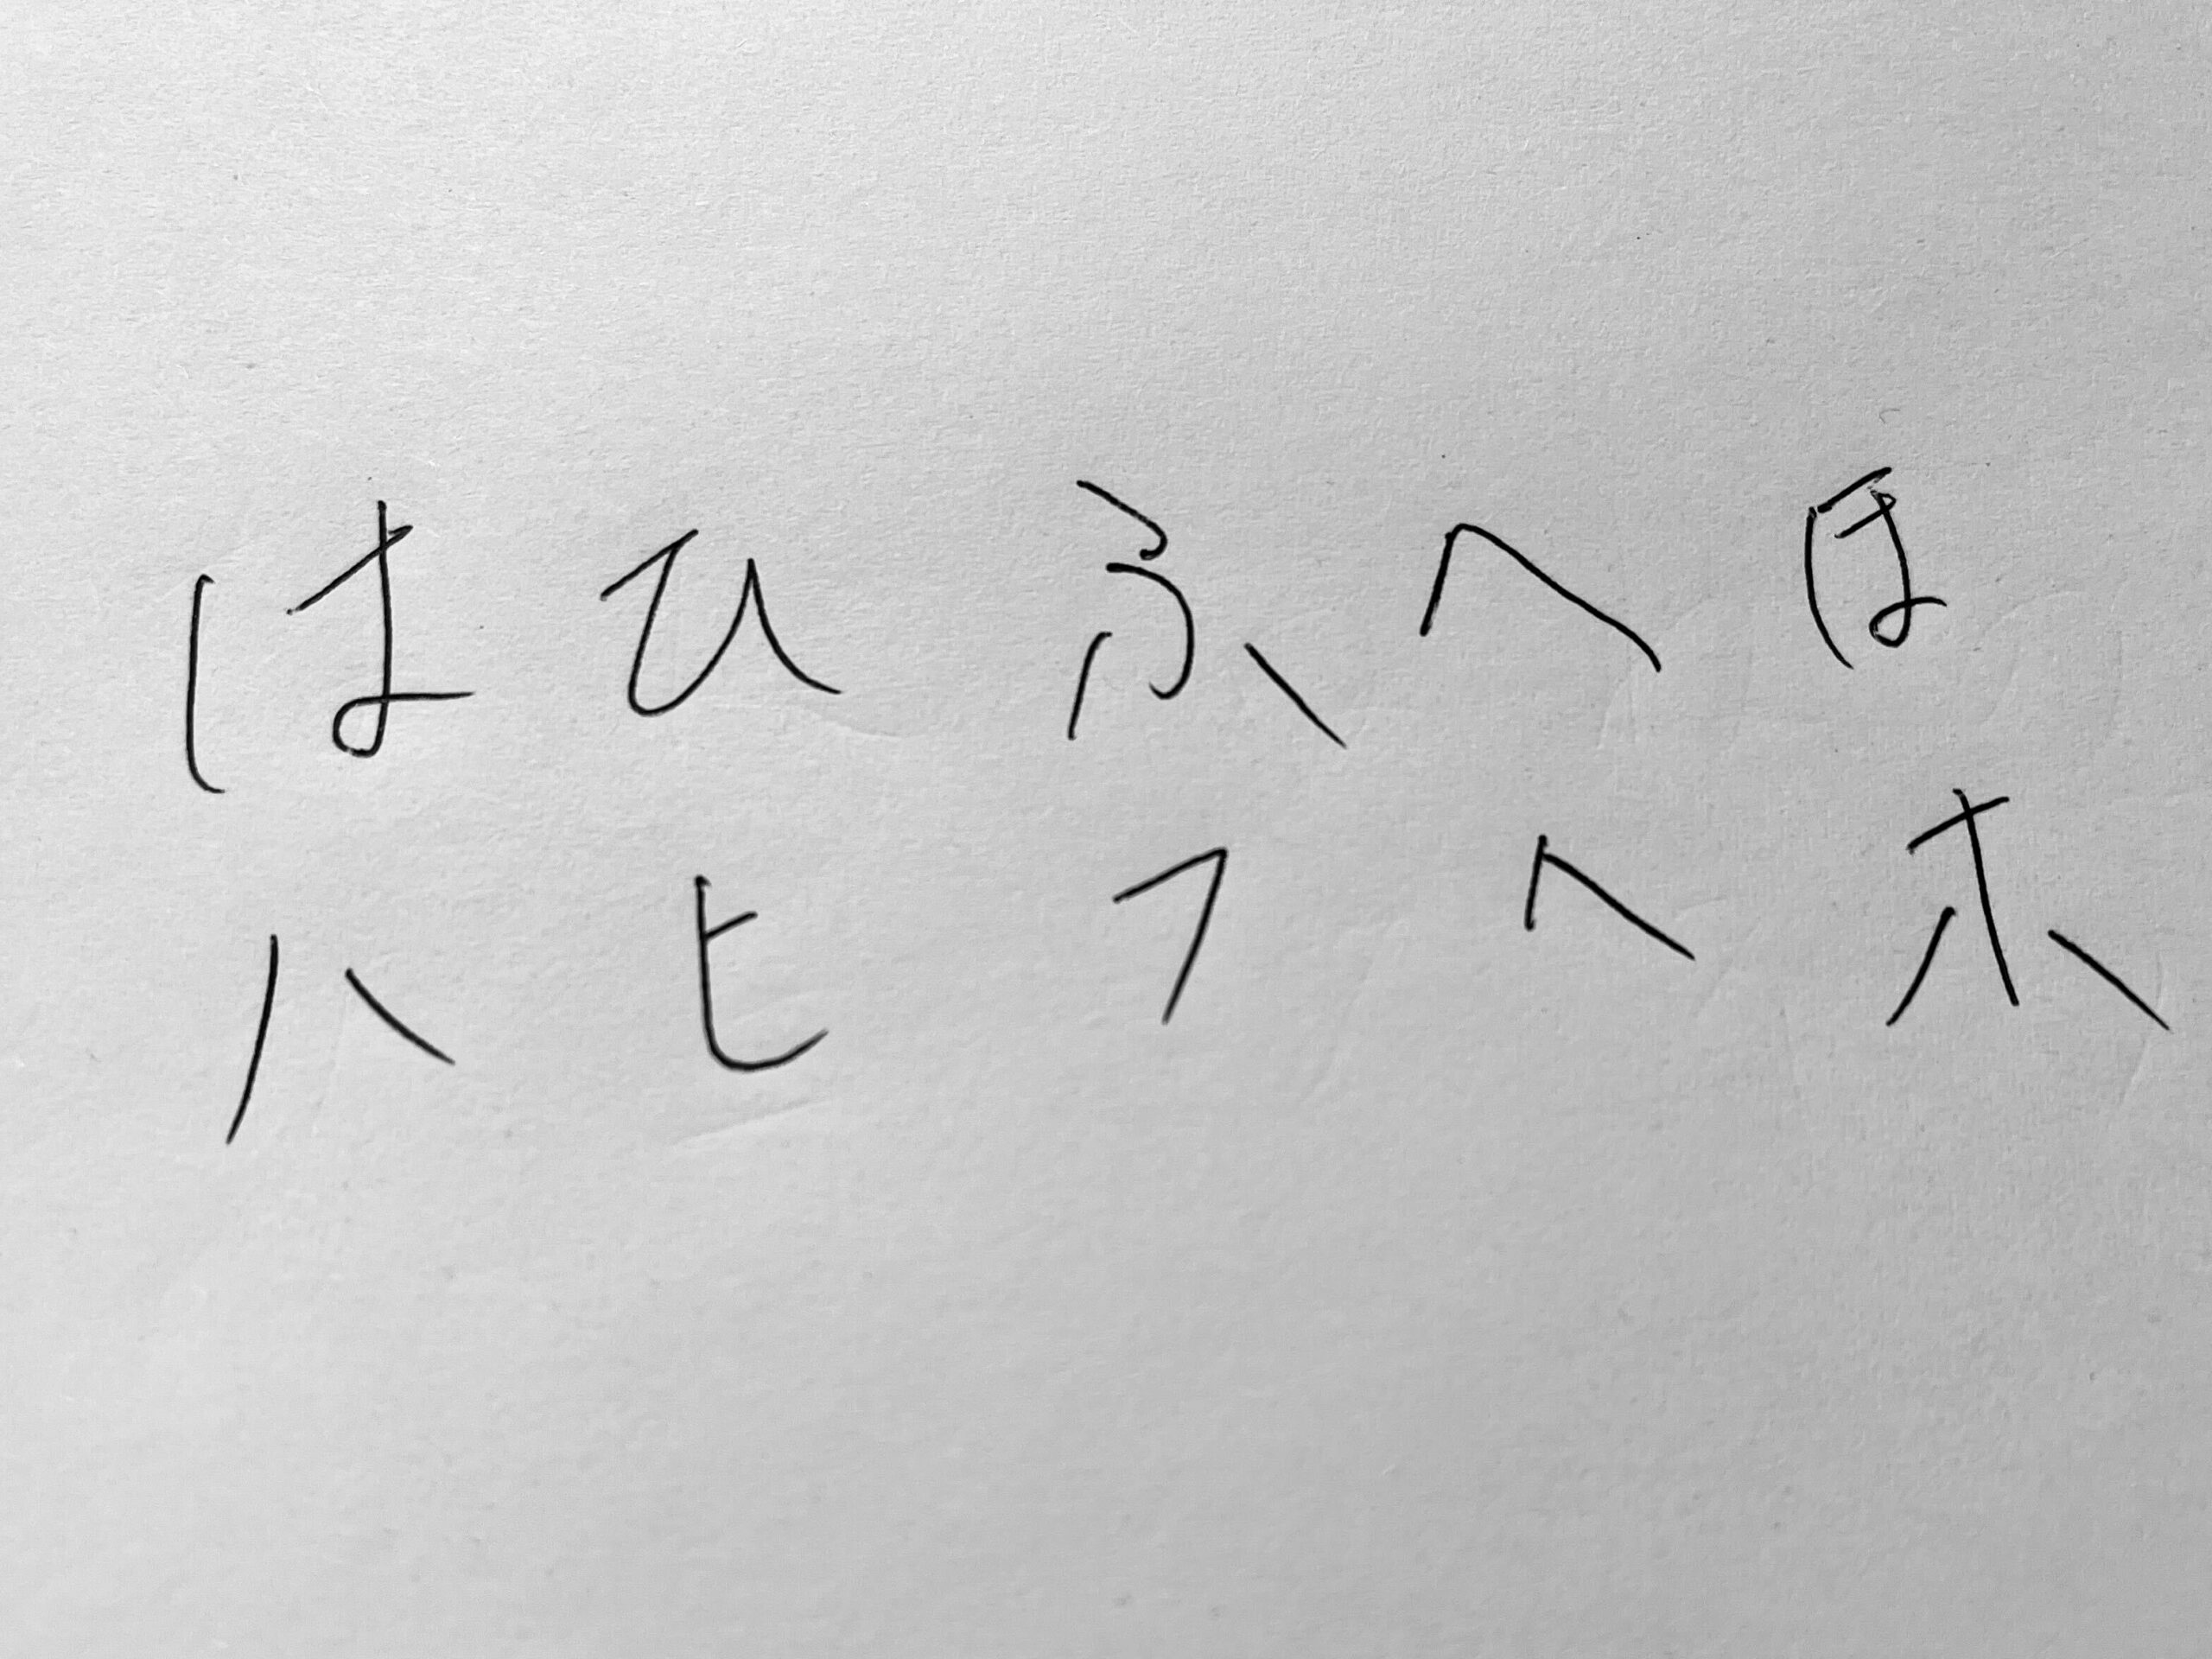 はひふへほ
ハヒフヘホ